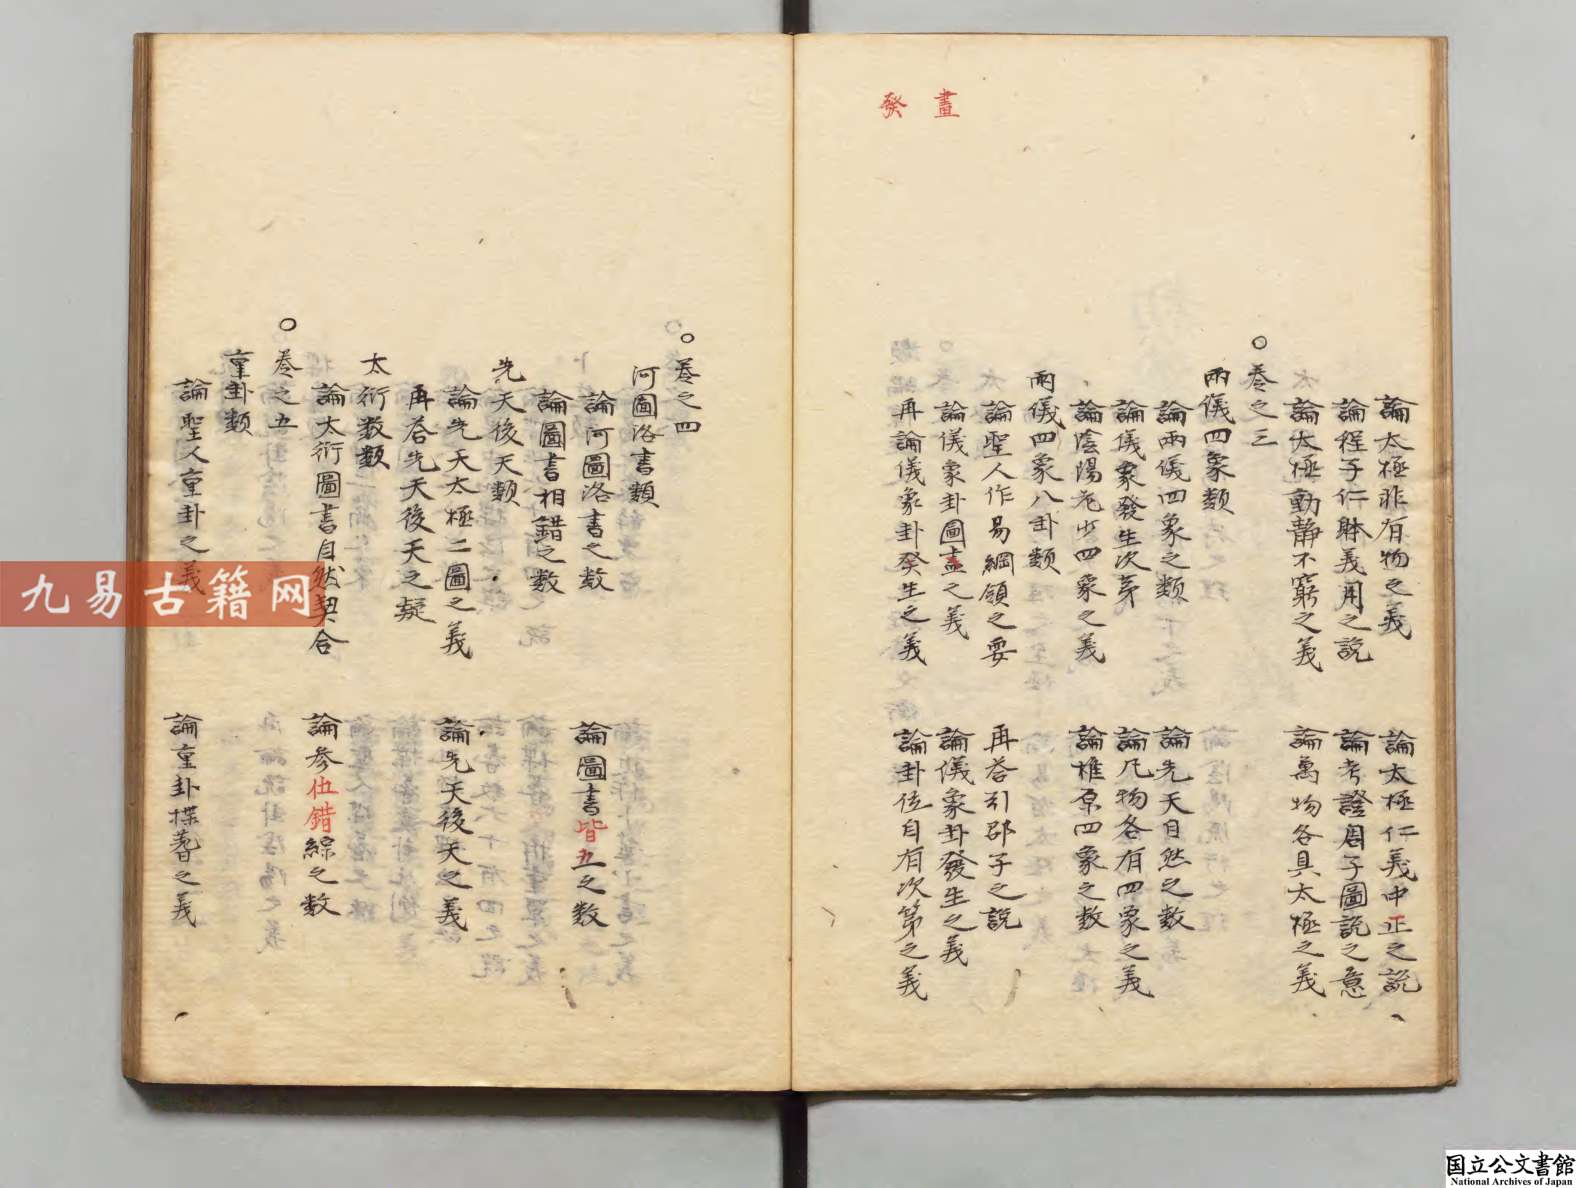 畫
發
論太極非有物之義　論太極仁義中正之説
論程子仁躰義用之説　論考證周子圖説之意
論太極動静不窮之義　論萬物各具太極之義
○卷之三
兩儀四象類
論兩儀四象之類　論先天自然之数
論儀象發生次第　論凡物各有四象之義
論陰陽老少四象之義　論推原四象之数
兩儀四象八卦類
論聖人作易綱領之要　再答引邵子之説
論儀象卦圖畫之義　論儀象卦發生之義
再論儀象卦發生之義　論卦位自有次第之義
○卷之四
河圖洛書類
論河圖洛書之数　論圖書皆五之数
論圖書相錯之数
先天後天類
論先天太極二圖之義　論先天後天之義
再答先天後天之疑
太衍数類
論太衍圖書自然契合　論參伍錯綜之数
○卷之五
重卦類
論聖人重卦之義　論重卦揲蓍之義
九易古籍网
国立公文書館
National Archives of Japan